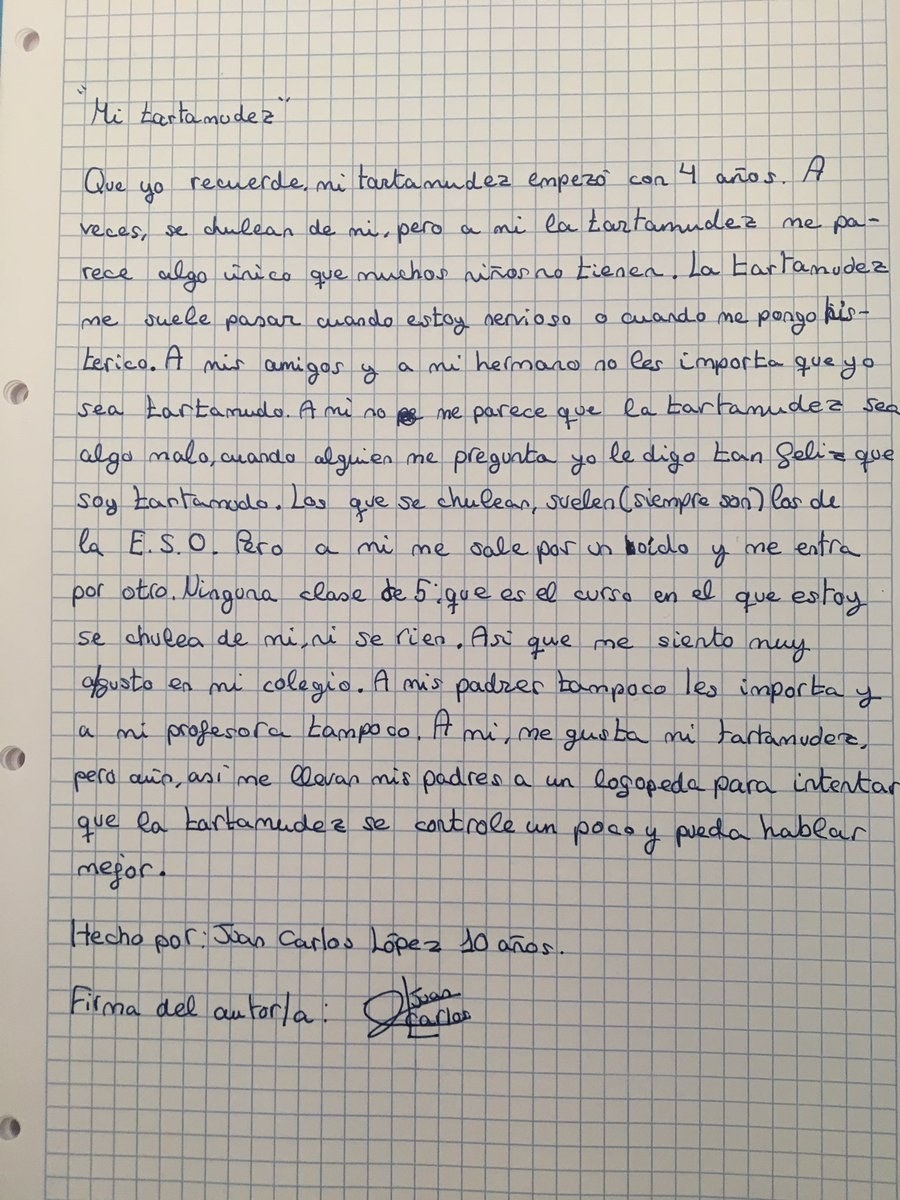 "Mi tartamudez"
Que yo recuerde, mi tartamudez empezó con 4 años. A
veces, se chulean de mi, pero a mi la tartamudez me pa-
rece algo único que muchos niños no tienen. La tartamudez
me suele pasar cuando estoy nervioso o cuando me pongo his-
terico. A mis amigos y a mi hermano no les importa que yo
sea tartamudo. A mi no me parece que la tartamudez sea
algo malo, cuando alguien me pregunta yo le digo tan feliz que
soy tartamudo. Los que se chulean, suelen (siempre son) los de
la E.S.O. Pero a mi me sale por un oído y me entra
por otro. Ninguna clase de 5: que es el curso en el que estoy
se chulea de mi, ni se rien. Asi que me siento muy
agusto en mi colegio. A mis padres tampoco les importa y
a mi profesora tampoco. A mi, me gusta mi tartamudez,
pero aún, así me llevan mis padres a un logopeda para intentar
que la tartamudez se controle un poco y pueda hablar
mejor.
Hecho por: Juan Carlos López 10 años.
Firma del autor/a: Juan
Carlos